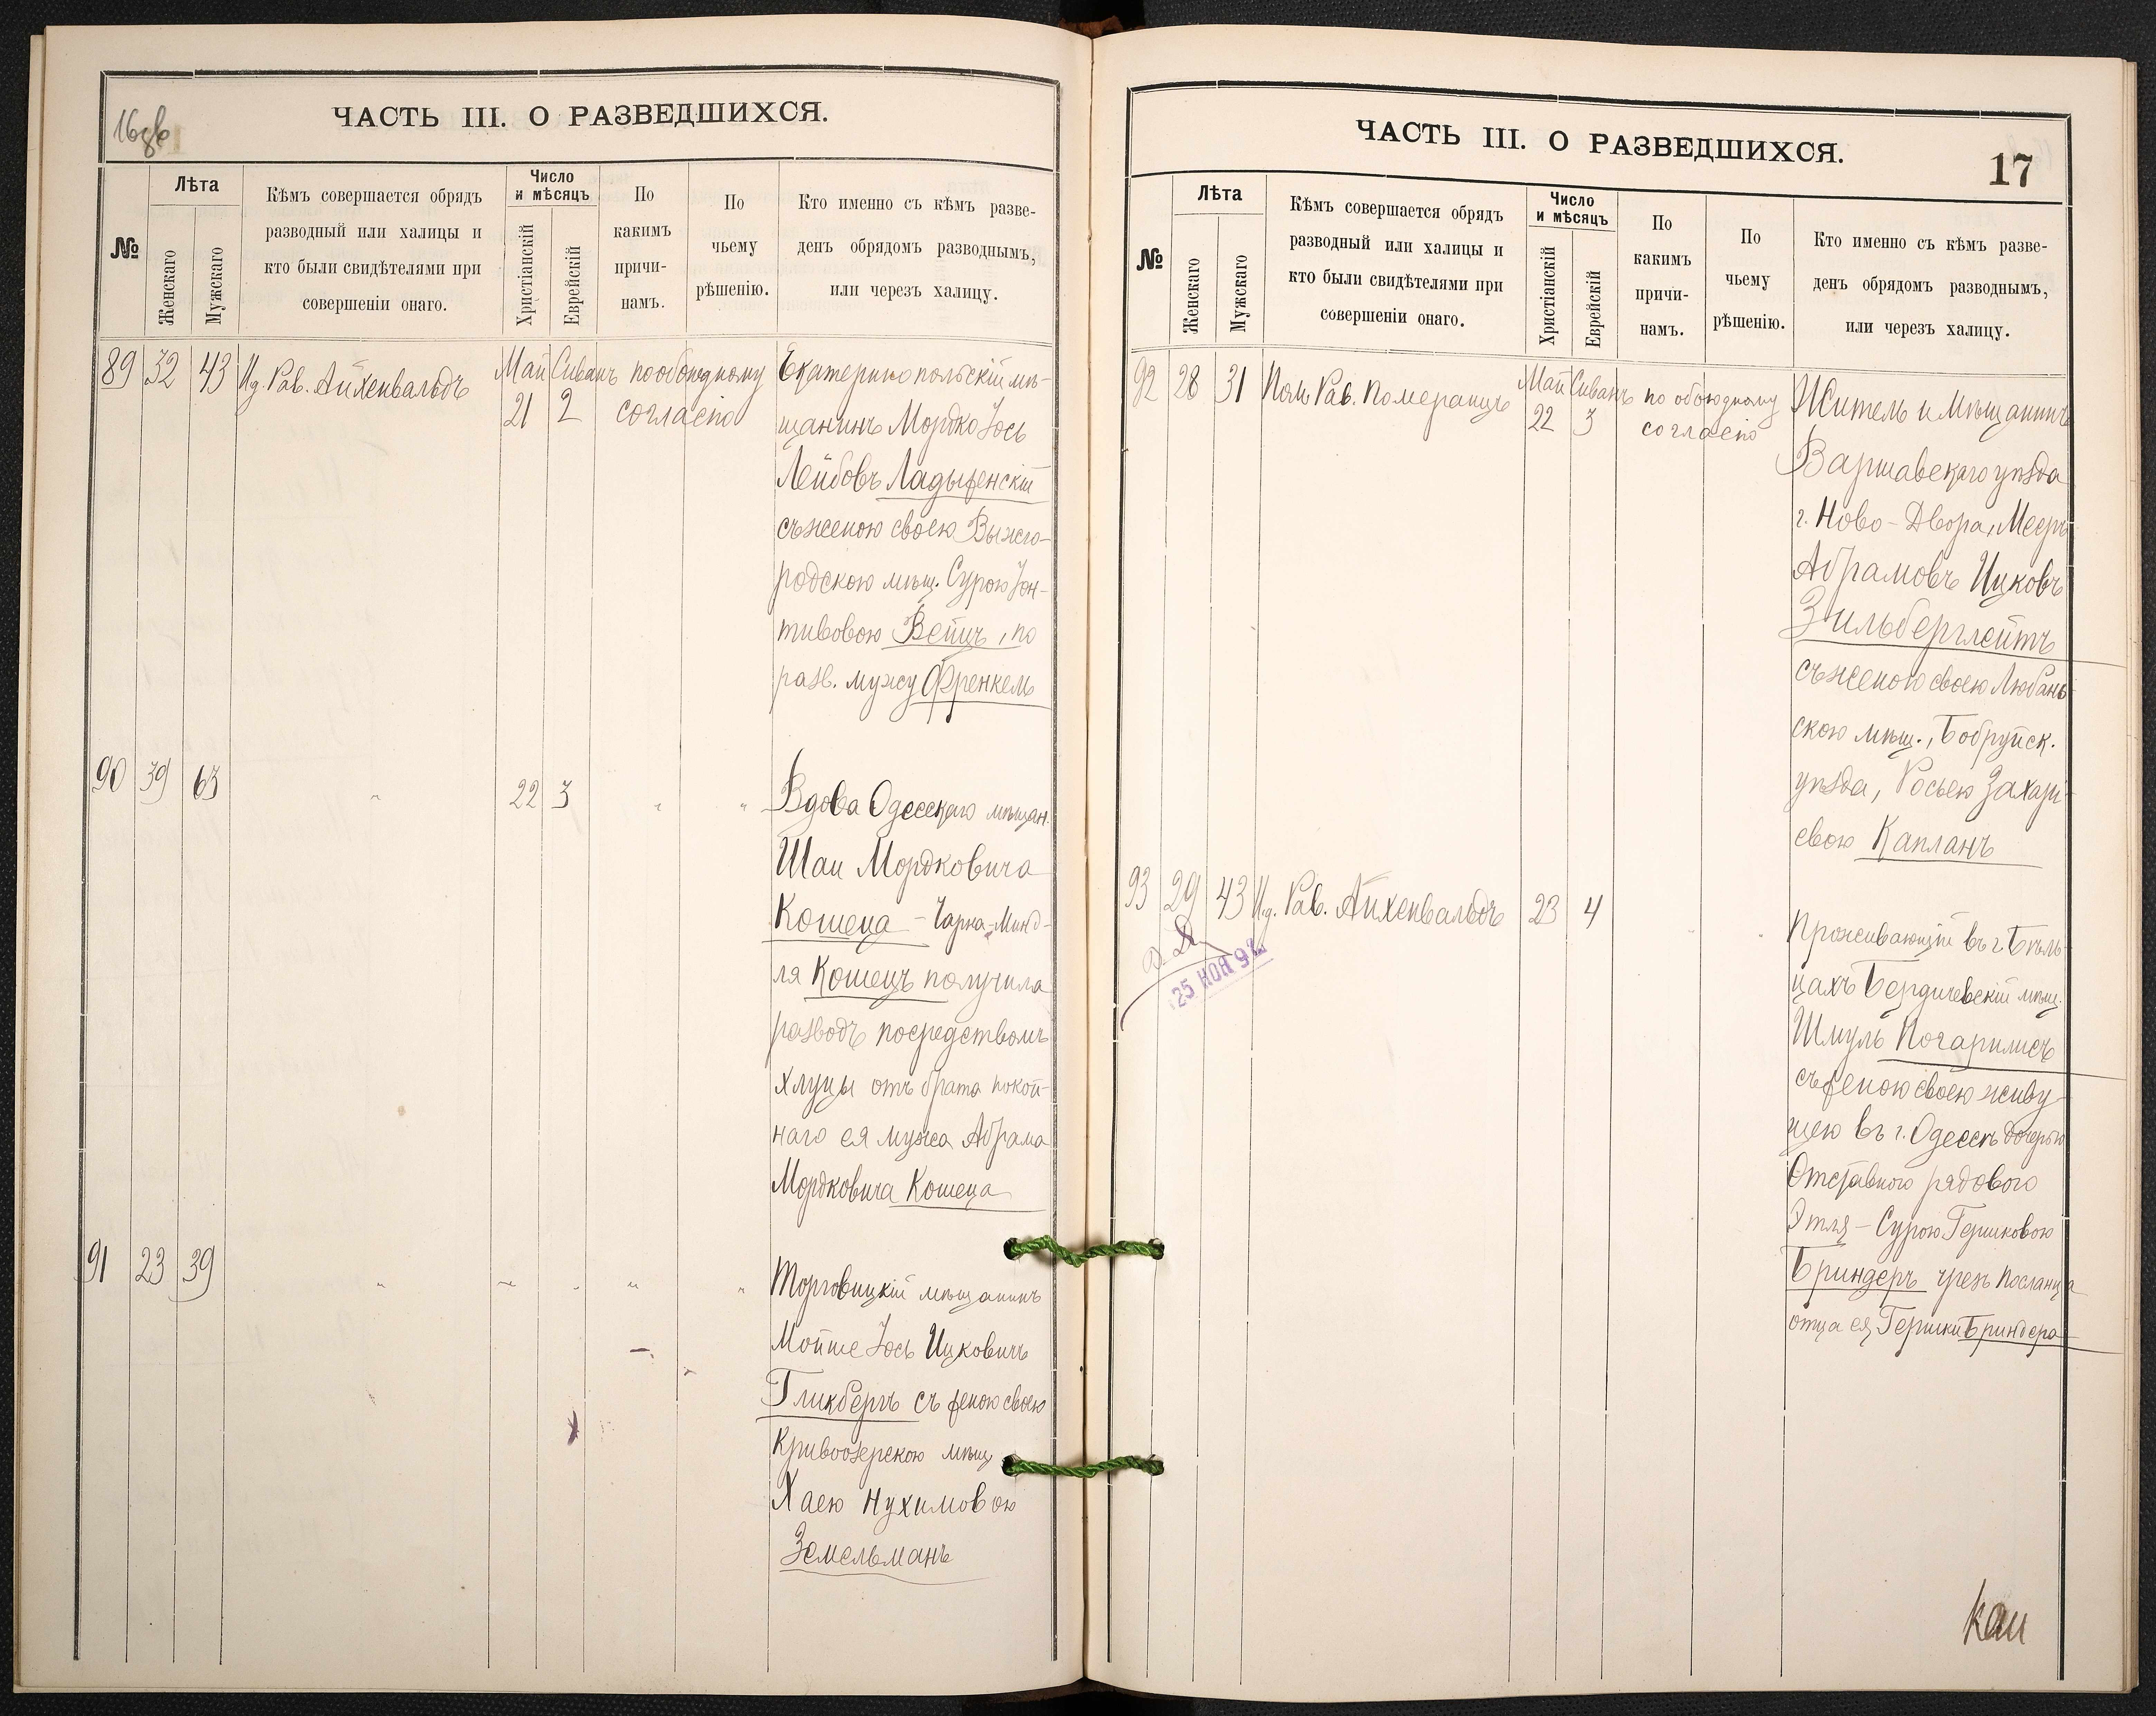 ЧАСТЬ III. О РАЗВЕДШИХСЯ.
№
Лѣта
Женскаго
Мужскаго
Кѣмъ совершается обрядъ
разводный или халицы и
кто были свидѣтелями при
совершеніи онаго.
Число
и мѣсяцъ
Христіанскій
Еврейскій
По
какимъ
причи-
намъ.
По
чьему
рѣшенію.
Кто именно съ кѣмъ разве-
денъ обрядомъ разводнымъ,
или черезъ халицу.
89 32 43 Ид. Рав. Айхенвальдъ Май Сиванъ по обоюдному
21 2 согласію
Екатеринопольскій мѣ-
щанинъ Мордко Іось
Лейбовъ Ладыженскій
съ женою своею Вышго-
родскою мѣщ. Сурою Іон-
тивовою Вейцъ, по
разв. мужу Френкель
90 39 63 " 22 3 " "
Вдова Одесскаго мѣщан.
Шаи Мордковича
Кошеца - Чарна-Минд-
ля Кошецъ получила
разводъ посредствомъ
хлуцы отъ брата покой-
наго ея мужа Абрама
Мордковича Кошеца
91 23 39 " " " " "
Торговицкій мѣщанинъ
Мойше Іось Ицковичъ
Гликбергъ съ женою своею
Кривоозерскою мѣщ
Хаею Нухимовою
Земельманъ
ЧАСТЬ III. О РАЗВЕДШИХСЯ.
17
№
Лѣта
Женскаго
Мужскаго
Кѣмъ совершается обрядъ
разводный или халицы и
кто были свидѣтелями при
совершеніи онаго.
Число
и мѣсяцъ
Христіанскій
Еврейскій
По
какимъ
причи-
намъ.
По
чьему
рѣшенію.
Кто именно съ кѣмъ разве-
денъ обрядомъ разводнымъ,
или черезъ халицу.
92 28 31 Пом Рав. Померанцъ Май Сиванъ по обоюдному
22 3 согласію
Житель и мѣщанинъ
Варшавскаго уѣзда
г. Ново-Двора, Мееръ
Абрамовъ Ицковъ
Зильберглейтъ
съ женою своею Любань-
скою мѣщ., Бобруйск.
уѣзда, Росьею Захарі-
евою Капланъ
93 29 43 Ид. Рав. Айхенвальдъ 23 4 " "
25 НОЯ 92
Проживающій въ г. Бѣль-
цахъ Бердичевскій мѣщ.
Шмуль Погарилисъ
съ женою своею живу-
щею въ г. Одессѣ дочерью
Отставного рядового
Этля - Сурою Гершковою
Бриндеръ чрезъ посланца
отца ея, Гершки Бриндера